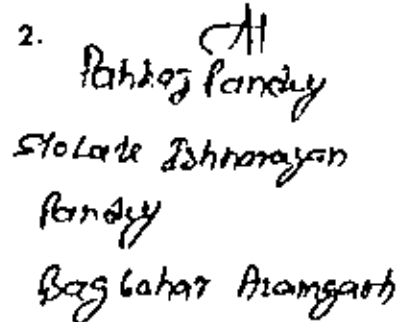 2.
Pankaj Pandey
S/o Late Ishnarayan
Pandey
Bag bahar Azamgarh